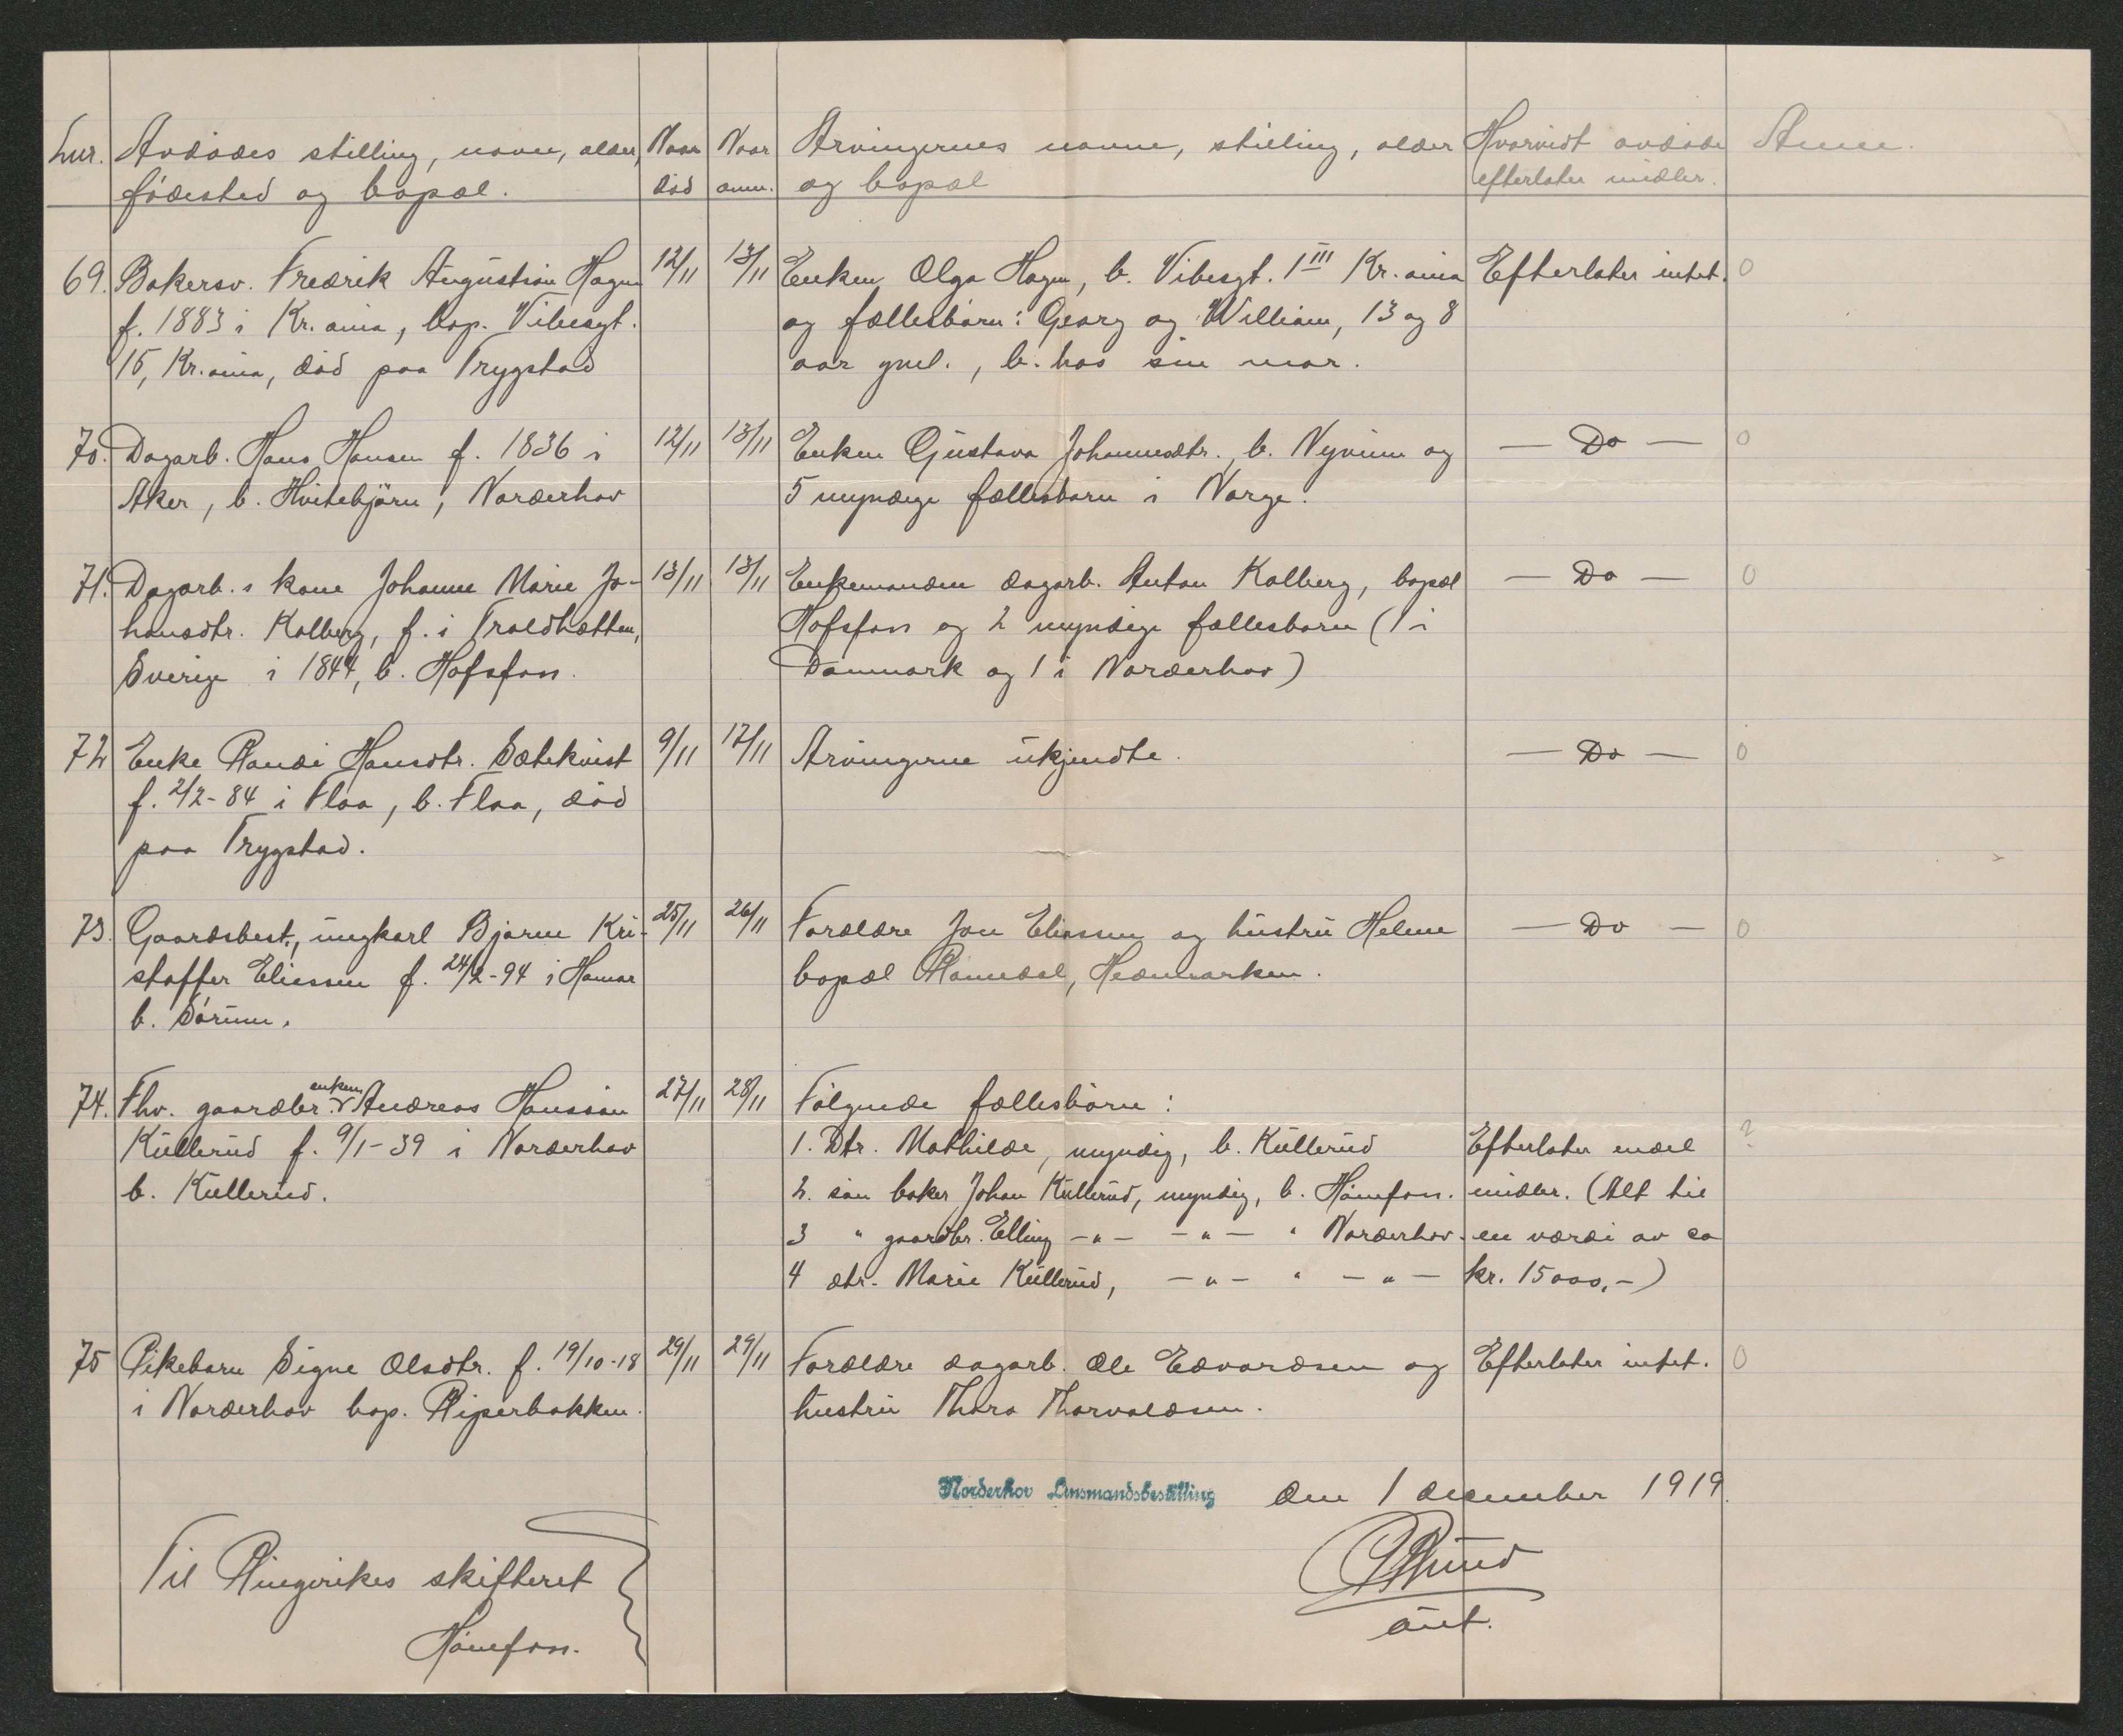 Lnr. Avdødes stilling, navn, alder, Naar Naar Arvingernes navne, stilling, alder Hvorvidt avdøde Anm.
fødested og bopæl. død anm. og bopæl efterlater midler.
69. Bakersv. Fredrik Augustson Hagen 12/11 13/11 Enken Olga Hagen, b. Vibesgt. 1 III Kr.ania Efterlater intet. 0
f. 1883 i Kr.ania, bop. Vibesgt. og fællesbarn: Georg og William, 13 og 8
15, Kr.ania, død paa Trygstad aar gml., b. hos sin mor.
70. Dagarb. Hans Hansen f. 1836 i 12/11 13/11 Enken Gustava Johannesdtr., b. Nyvinn og — Do — 0
Aker, b. Hvitebjørn, Norderhov 5 myndige fællesbarn i Norge.
71. Dagarb.s kone Johanne Marie Jo- 13/11 13/11 Enkemanden dagarb. Anton Kolberg, bopæl — Do — 0
hansdtr. Kolberg, f. i Troldhætten, Hofsfos og 2 myndige fællesbarn (1 i
Sverige i 1844, b. Hofsfos. Danmark og 1 i Norderhov)
72 Enke Randi Hansdtr. Sætekvist 9/11 17/11 Arvingerne ukjendte. — Do — 0
f. 2/2-84 i Flaa, b. Flaa, død
paa Trygstad.
73. Gaardsbest., ungkarl Bjarne Kri- 25/11 26/11 Forældre Jon Eliassen og hustru Helene — Do — 0
stoffer Eliessen f. 24/2-94 i Hamar bopæl Romedal, Hedemarken.
b. Sørum.
74. Fhv. gaardbr. enkem. Andreas Hansson 27/11 28/11 Følgende fællesbørn:
Kullerud f. 9/1-39 i Norderhov 1. Dtr. Mathilde, myndig, b. Kullerud Efterlater endel ?
b. Kullerud. 2. søn baker Johan Kullerud, myndig, b. Hønefoss. midler. (Alt til
3 " gaardbr. Elling -"- -"- " Norderhov. en værdi av ca
4 dtr. Marie Kullerud, -"- " -"- kr. 15000,-)
75 Pikebarn Signe Olsdtr. f. 19/10-18 29/11 29/11 Forældre dagarb. Ole Edvardsen og Efterlater intet. 0
i Norderhov bop. Piperbakken. hustru Thora Thorvaldsen.
Norderhov Lensmandsbestilling den 1 december 1919.
Til Ringerikes skifteret
Hønefoss.
aut.